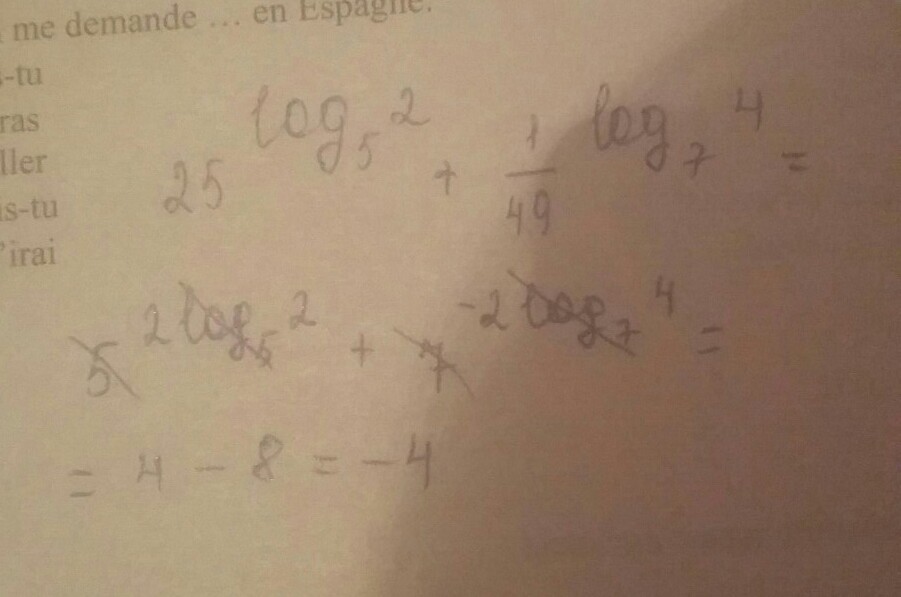 me demande ... en Espagne.
-tu
ras
ller
is-tu
'irai
25^log₅2 + 1/49^log₇4 =
5^2log₅2 + 7^-2log₇4 =
= 4 - 8 = -4